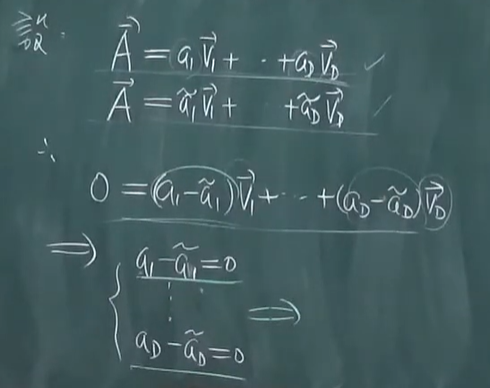 证明:
A⃗ = a₁V⃗₁ + ⋯ + a_D V⃗_D ✓
A⃗ = ã₁V⃗₁ + + ã_D V⃗_D ✓
∴
0 = (a₁ - ã₁)V⃗₁ + ⋯ + (a_D - ã_D)V⃗_D
⟹ { a₁ - ã₁ = 0
⋮ ⟹
a_D - ã_D = 0